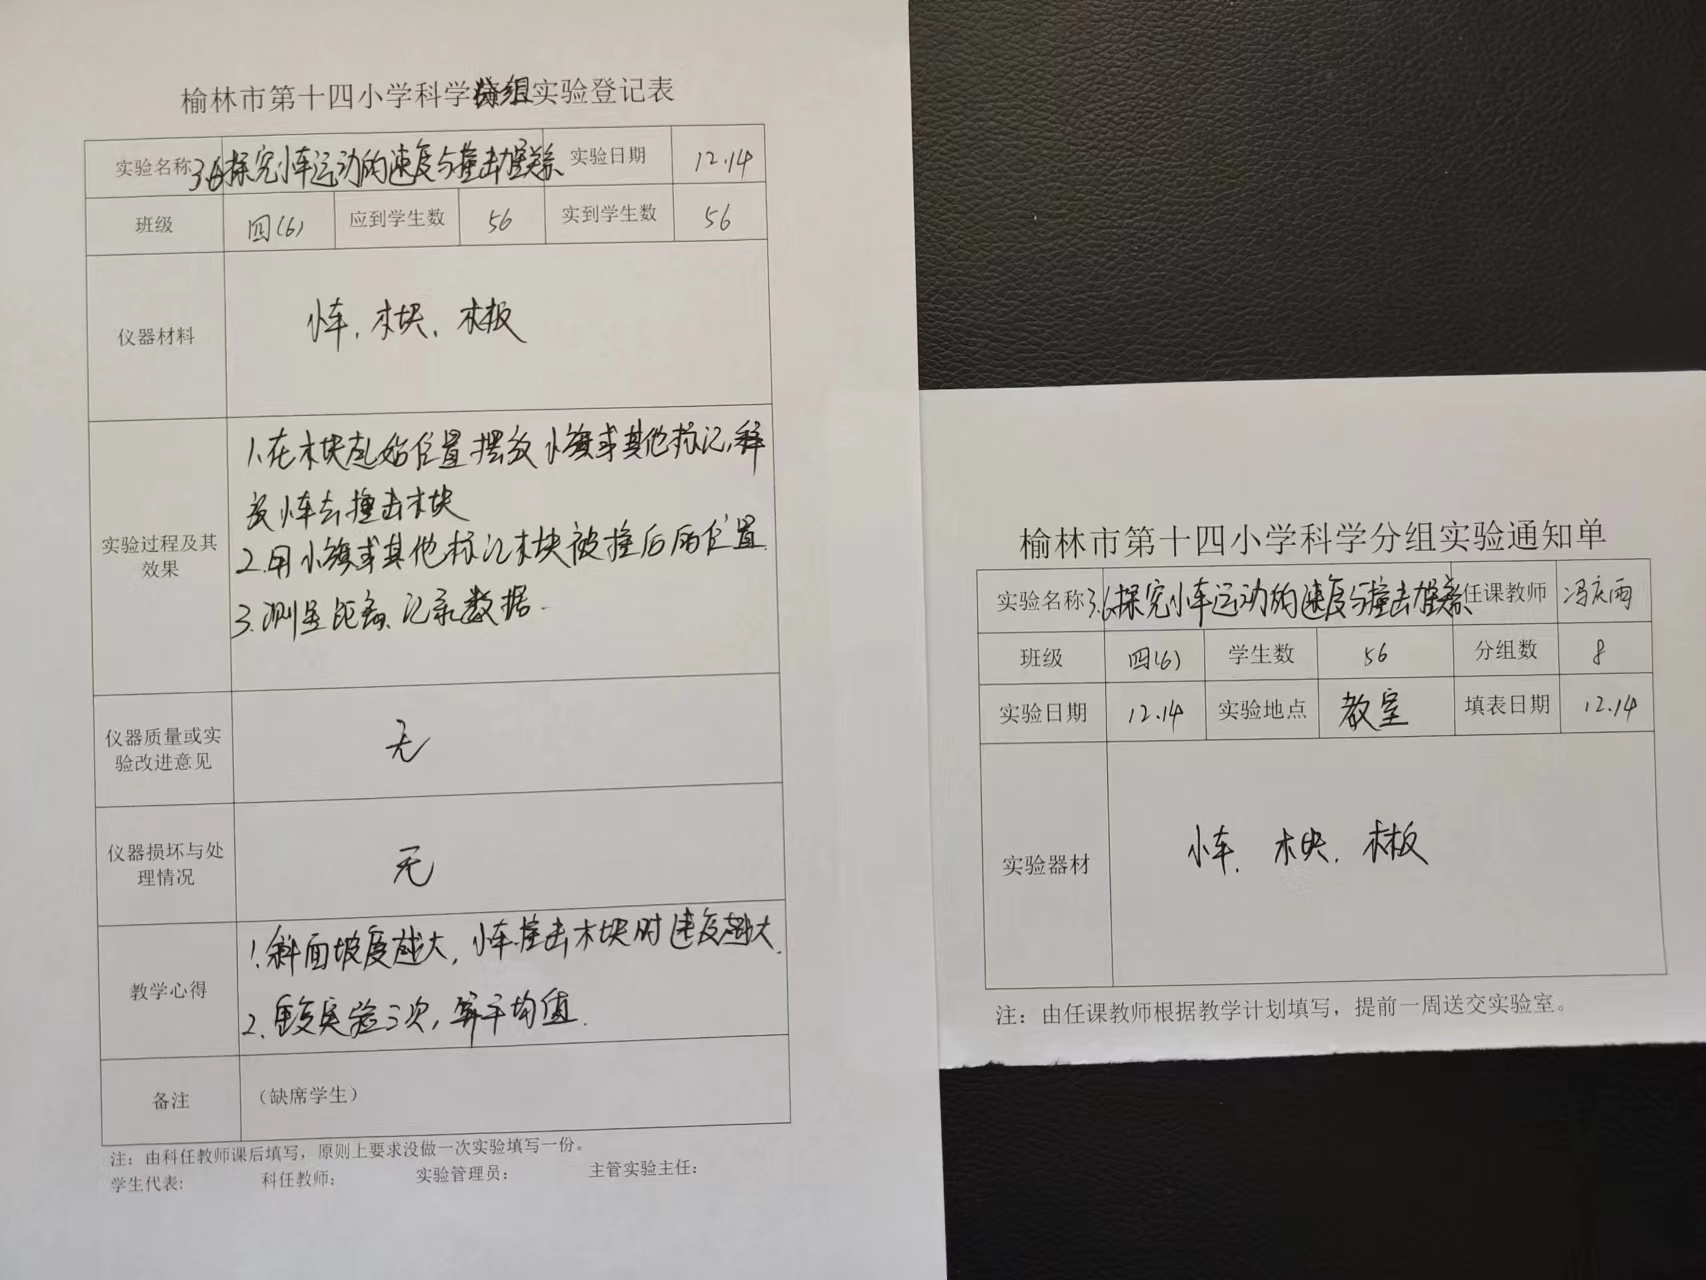 榆林市第十四小学科学分组实验登记表
实验名称 3.6探究小车运动的速度与撞击力的关系 实验日期 12.14
班级 四(6) 应到学生数 56 实到学生数 56
仪器材料 小车、木块、木板
实验过程及其效果
1.在木块起始位置摆放小旗或其他标记,释
放小车去撞击木块
2.用小旗或其他标记木块被撞后的位置.
3.测量距离、记录数据.
仪器质量或实验改进意见 无
仪器损坏与处理情况 无
教学心得
1.斜面坡度越大,小车撞击木块时速度越大.
2.重复实验三次,算平均值.
备注 (缺席学生)
注:由科任教师课后填写,原则上要求没做一次实验填写一份。
学生代表: 科任教师: 实验管理员: 主管实验主任:
榆林市第十四小学科学分组实验通知单
实验名称 3.6探究小车运动的速度与撞击力的关系 任课教师 冯庆雨
班级 四(6) 学生数 56 分组数 8
实验日期 12.14 实验地点 教室 填表日期 12.14
实验器材 小车、木块、木板
注:由任课教师根据教学计划填写,提前一周送交实验室。